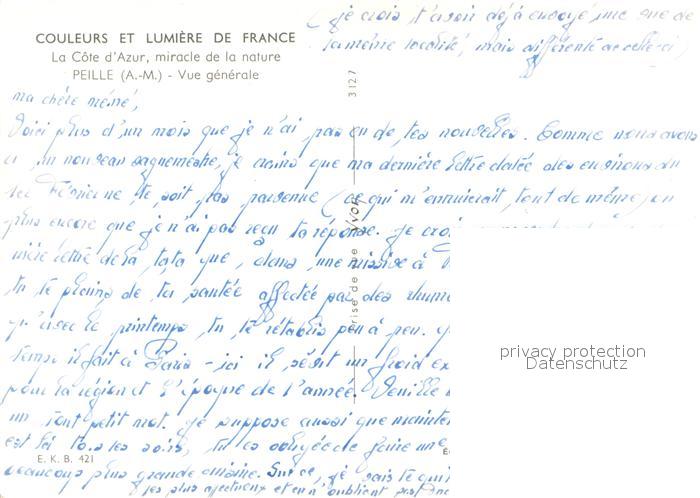 (je crois t'avoir déjà envoyé une vue de
la même localité, mais différente de celle-ci)
COULEURS ET LUMIÈRE DE FRANCE
La Côte d'Azur, miracle de la nature
PEILLE (A.-M.) - Vue générale
3127
ma chère mémé,
Voici plus d'un mois que je n'ai pas eu de tes nouvelles. Comme nous avons
ci un nouveau vaguemestre, je crains que ma dernière lettre datée des environs du
1er Février ne te soit pas parvenue (ce qui m'ennuierait, tout de même, un
plus encore que je n'ai pas reçu ta réponse. Je croi
nière lettre de la tata que, dans une missive à
tu te plains de ta santée affectée par des rhum
qu'avec le printemps, tu te rétablis peu à peu.
temps il fait à Paris - ici il sévit un froid ex
pour la région et l'époque de l'année. Veuille
un tout petit mot. Je suppose aussi que mainte
est là tous les soirs, tu es obligée de faire une
beaucoup plus grande cuisine. Sur ce, je vais te qui
les plus affectueux et en n'oubliant pas
prise de vue YVON
E. K. B. 421
privacy protection
Datenschutz